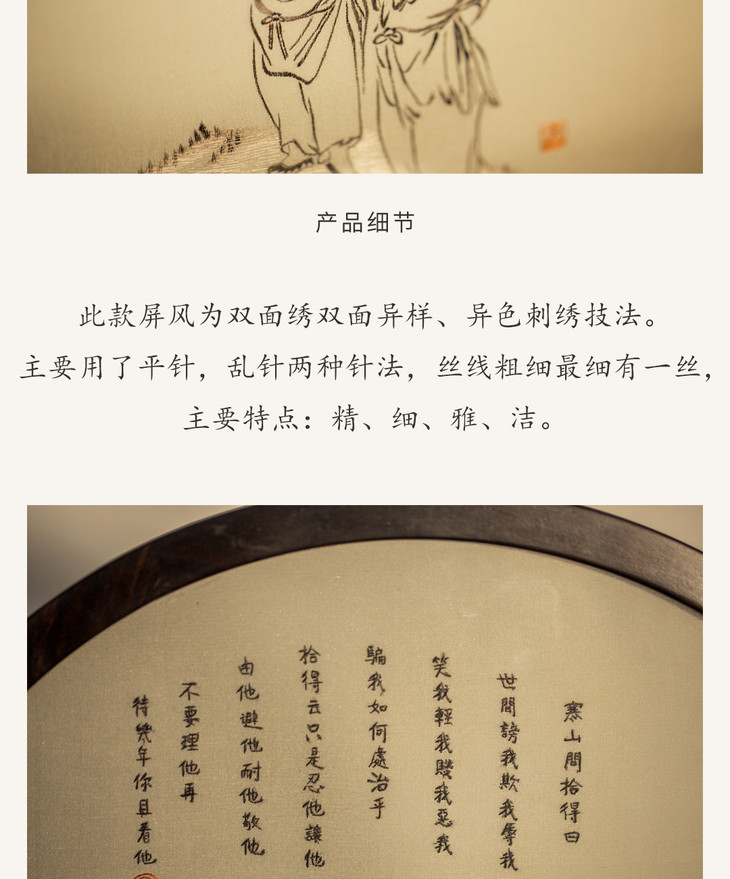 产品细节
此款屏风为双面绣双面异样、异色刺绣技法。
主要用了平针，乱针两种针法，丝线粗细最细有一丝，
主要特点：精、细、雅、洁。
寒山問拾得曰
世間謗我欺我辱我
笑我輕我賤我惡我
騙我如何處治乎
拾得云只是忍他讓他
由他避他耐他敬他
不要理他再
待幾年你且看他